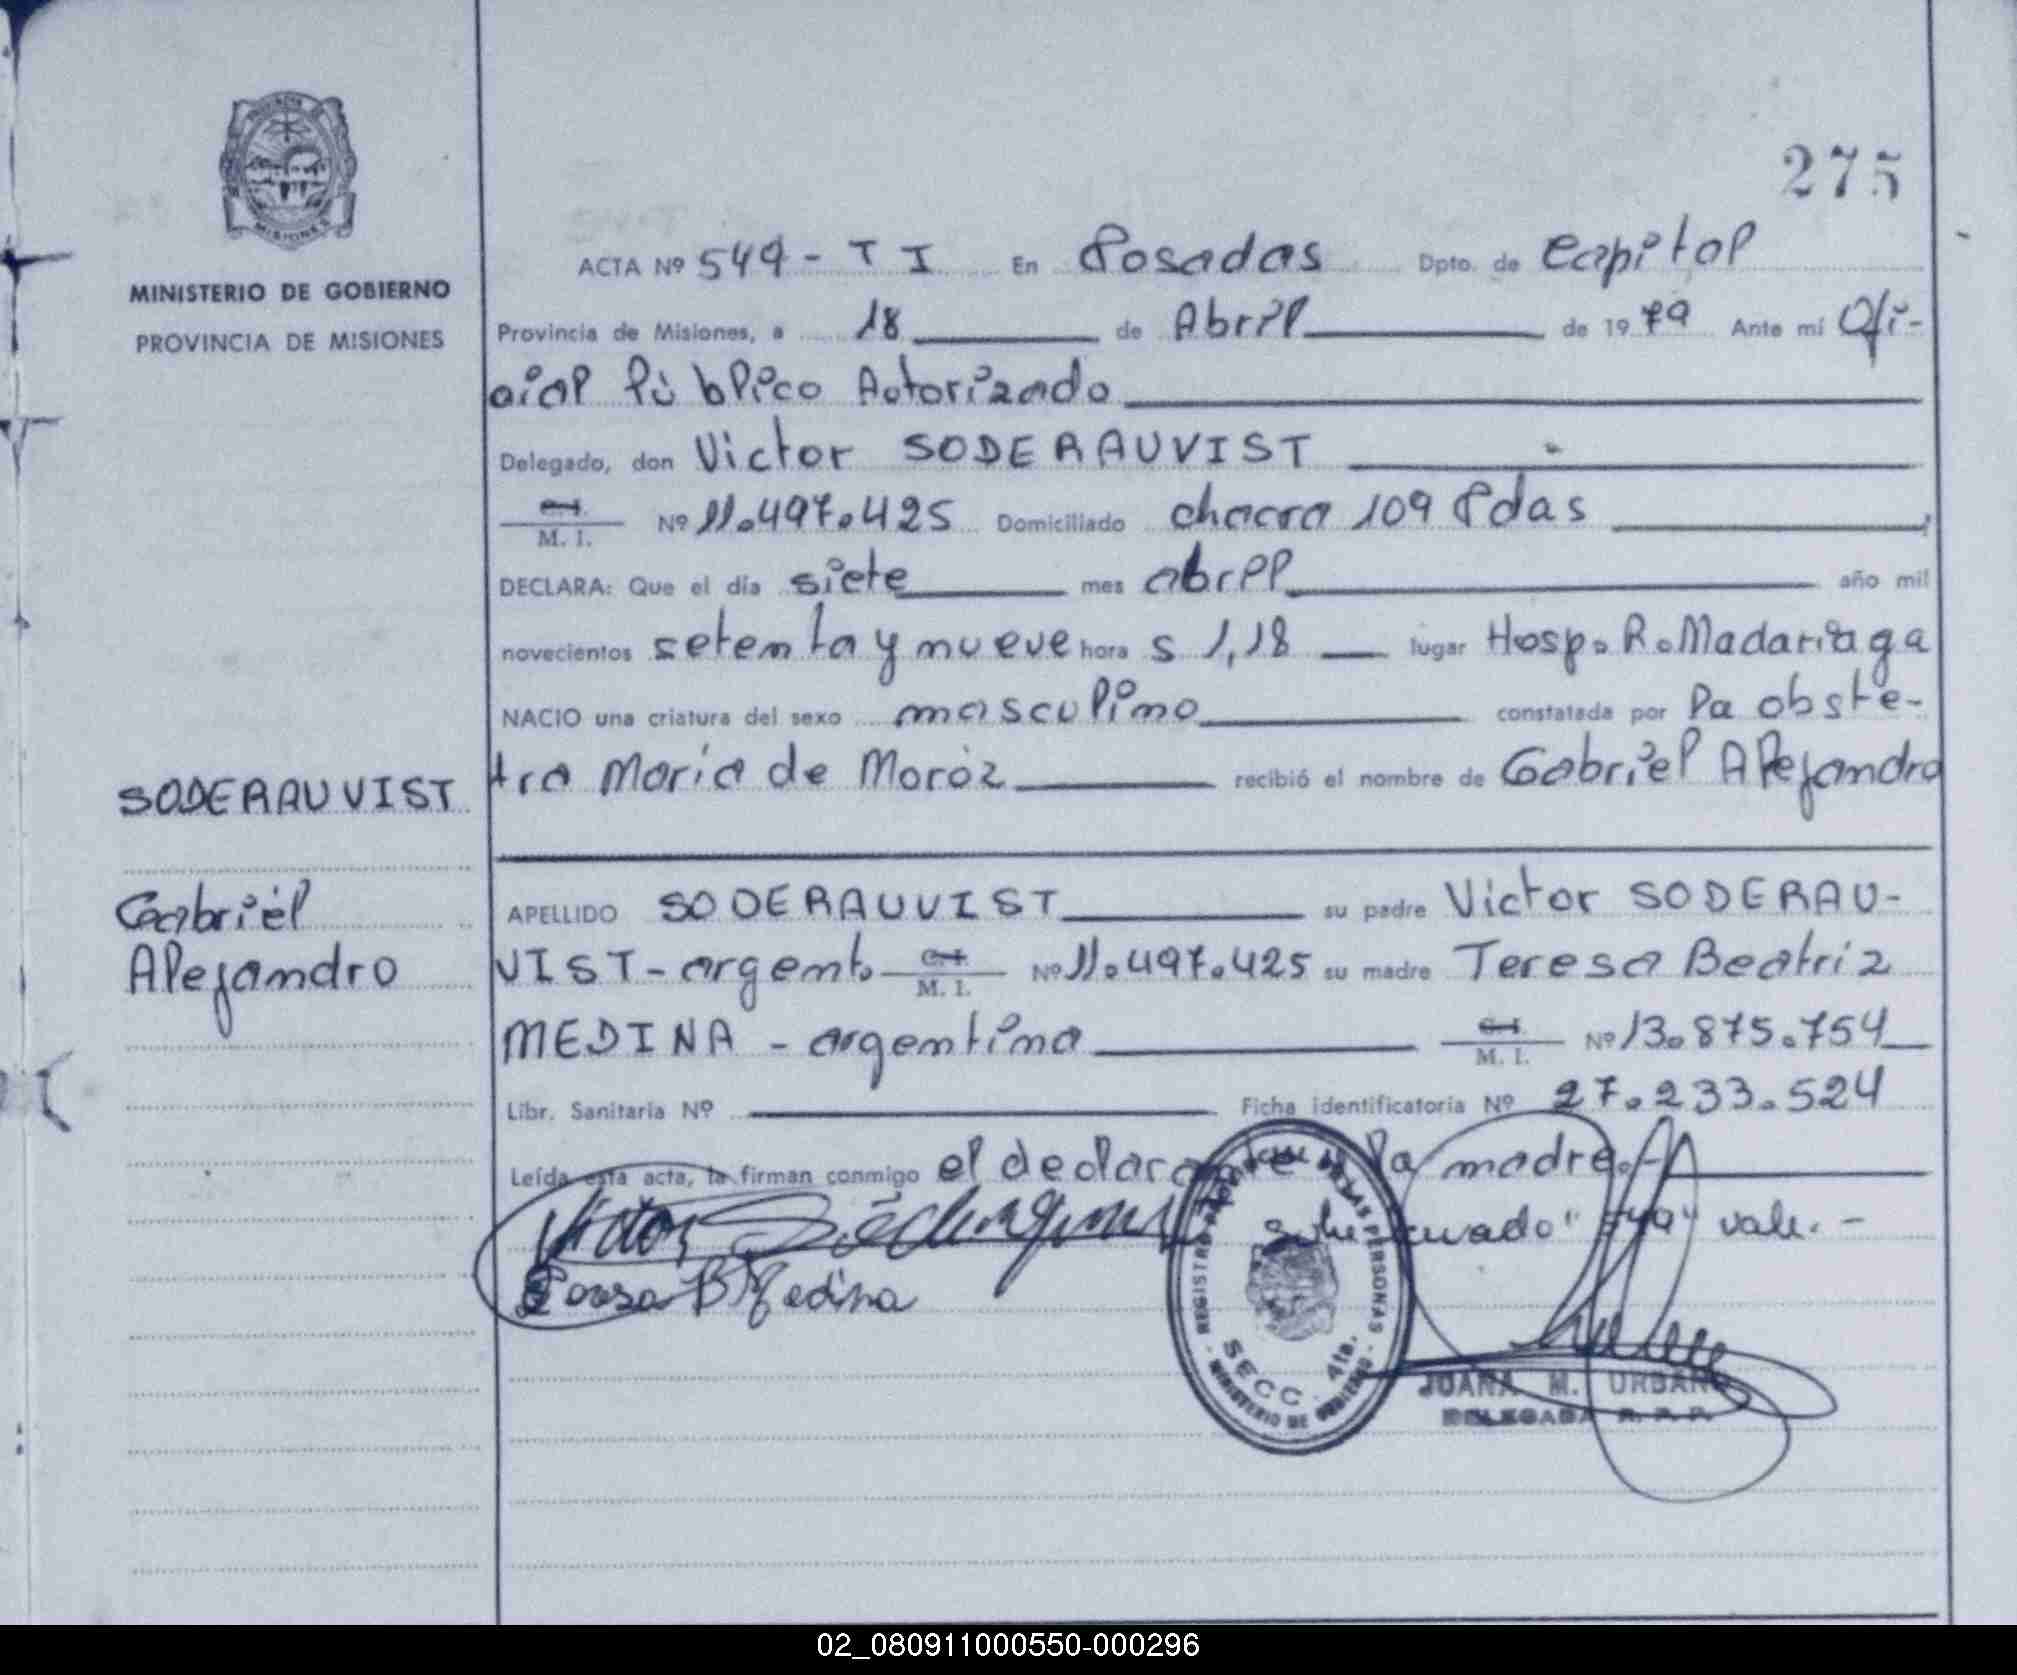 275
MINISTERIO DE GOBIERNO
PROVINCIA DE MISIONES
ACTA Nº 549 - T I En Posadas Dpto. de Capital
Provincia de Misiones, a 18 de Abril de 1979 Ante mí Ofi-
cial Público Autorizado
Delegado, don Victor SODERAUVIST
C.I. M. I. Nº 11.497.425 Domiciliado chacra 109 Pdas
DECLARA: Que el día siete mes abril año mil
novecientos setenta y nueve hora s 1,18 lugar Hosp. R. Madariaga
NACIO una criatura del sexo masculino constatada por la obste-
tra Maria de Moroz recibió el nombre de Gabriel Alejandro
SODERAUVIST
Gabriel
Alejandro
APELLIDO SODERAUVIST su padre Victor SODERAU-
VIST - argent. C.I. M. I. Nº 11.497.425 su madre Teresa Beatriz
MEDINA - argentina C.I. M. I. Nº 13.875.754
Libr. Sanitaria Nº Ficha identificatoria Nº 27.233.524
Leída esta acta, la firman conmigo el declarante y la madre.-
Victor
vale. -
B Medina
REGISTRO PROVINCIAL DE LAS PERSONAS
SECC. 4ta.
MINISTERIO DE GOBIERNO
JUANA M. URBANO
DELEGADA R. P. P.
02_080911000550-000296